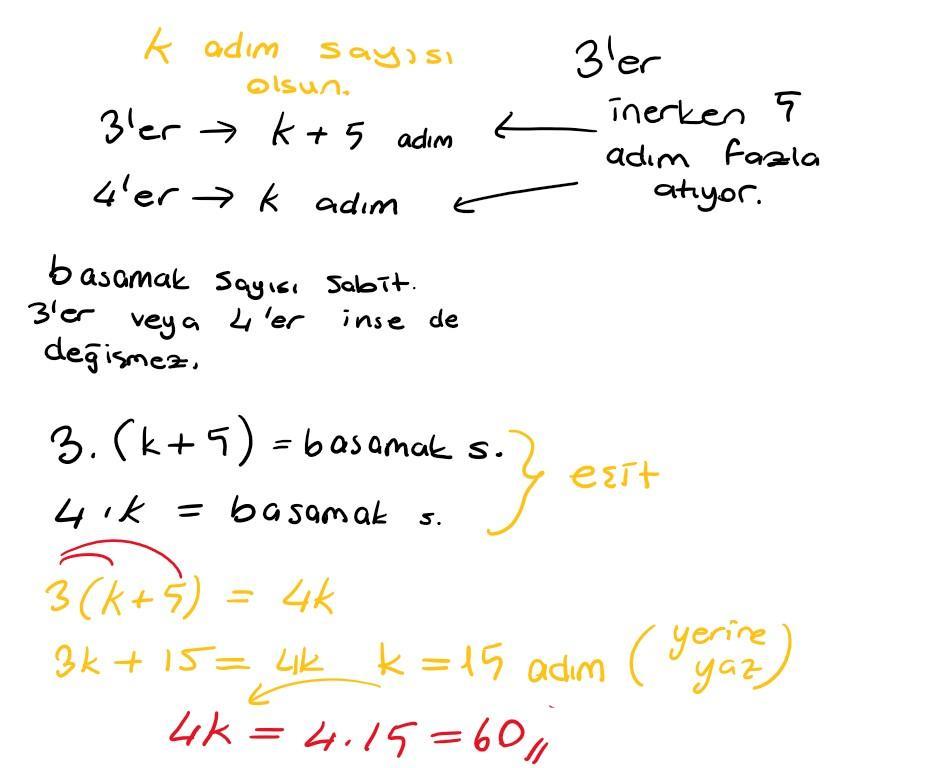 k adım sayısı
olsun.
3'er
inerken 5
adım fazla
atıyor.
3'er → k + 5 adım
4'er → k adım
basamak sayısı sabit.
3'er veya 4'er inse de
değişmez.
3. (k+5) = basamak s.
4.k = basamak s.
} eşit
3(k+5) = 4k
3k + 15 = 4k k = 15 adım (yerine
yaz)
4k = 4.15 = 60,,